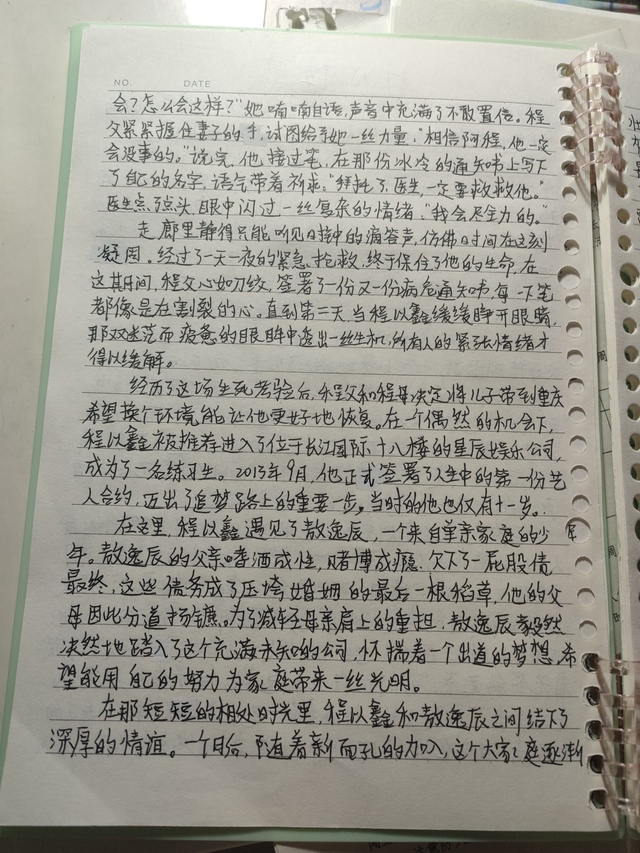 NO. DATE
会？怎么会这样？”她喃喃自语，声音中充满了不敢置信。程
父紧紧握住妻子的手，试图给予她一丝力量，“相信阿程，他一定
会没事的。”说完，他接过笔，在那份冰冷的通知书上写下
了自己的名字，语气带着祈求。“拜托了，医生，一定要救救他。”
医生点点头，眼中闪过一丝复杂的情绪，“我会尽全力的。”
走廊里静得只能听见时钟的滴答声，仿佛时间在这刻
凝固。经过了一天一夜的紧急抢救，终于保住了他的生命。在
这期间，程父心如刀绞，签署了一份又一份病危通知书，每一下笔
都像是在割裂的心。直到第三天当程以鑫缓缓睁开眼睛，
那双迷茫而疲惫的眼眸中透出一丝生机，所有人的紧张情绪才
得以缓解。
经历了这场生死考验后，程父和程母决定将儿子带到重庆
希望换个环境能让他更好地恢复。在一个偶然的机会下，
程以鑫被推荐进入了位于长江国际十八楼的星辰娱乐公司，
成为了一名练习生。2013年9月，他正式签署了人生中的第一份艺
人合约，迈出了追梦路上的重要一步。当时的他也仅有十一岁。
在这里，程以鑫遇见了敖逸辰，一个来自单亲家庭的少
年。敖逸辰的父亲嗜酒成性，赌博成瘾，欠下了一屁股债
最终，这些债务成了压垮婚姻的最后一根稻草，他的父
母因此分道扬镳。为了减轻母亲肩上的重担，敖逸辰毅然
决然地踏入了这个充满未知的公司，怀揣着一个出道的梦想，希
望能用自己的努力为家庭带来一丝光明。
在那短短的相处时光里，程以鑫和敖逸辰之间结下了
深厚的情谊。一个月后，随着新面孔的加入，这个大家庭逐渐